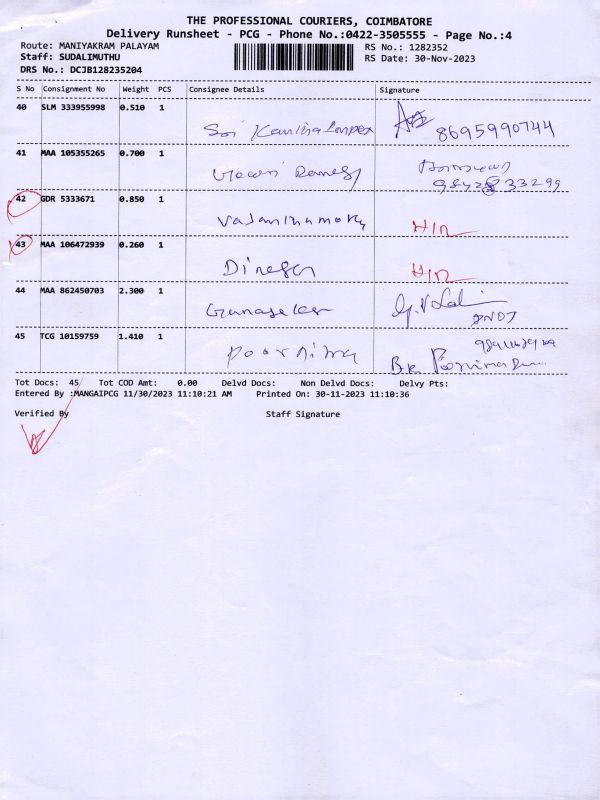 THE PROFESSIONAL COURIERS, COIMBATORE
Delivery Runsheet - PCG - Phone No.:0422-3505555 - Page No.:4
Route: MANIYAKRAM PALAYAM
RS No.: 1282352
Staff: SUDALIMUTHU
RS Date: 30-Nov-2023
DRS No.: DCJB128235204
S No Consignment No Weight PCS Consignee Details Signature
40 SLM 333955998 0.510 1
Sri 8695990744
41 MAA 105355265 0.700 1
42 GDR 5333671 0.850 1
43 MAA 106472939 0.260 1
Dinesh
44 MAA 862450703 2.300 1
Gunasekar
45 TCG 10159759 1.410 1
Poornima
Tot Docs: 45 Tot COD Amt: 0.00 Delvd Docs: Non Delvd Docs: Delvy Pts:
Entered By :MANGAIPCG 11/30/2023 11:10:21 AM Printed On: 30-11-2023 11:10:36
Verified By Staff Signature